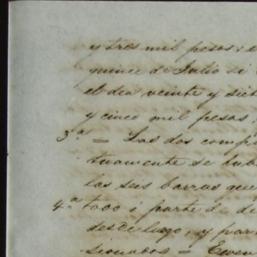 y tres mil pesos
quince de Julio si
el dia veinte y siet
y cinco mil pesos
3ª = Las dos comp
tuamente se
las seis barras que
4ª todo ó parte d
desde luego, y par
sionados =